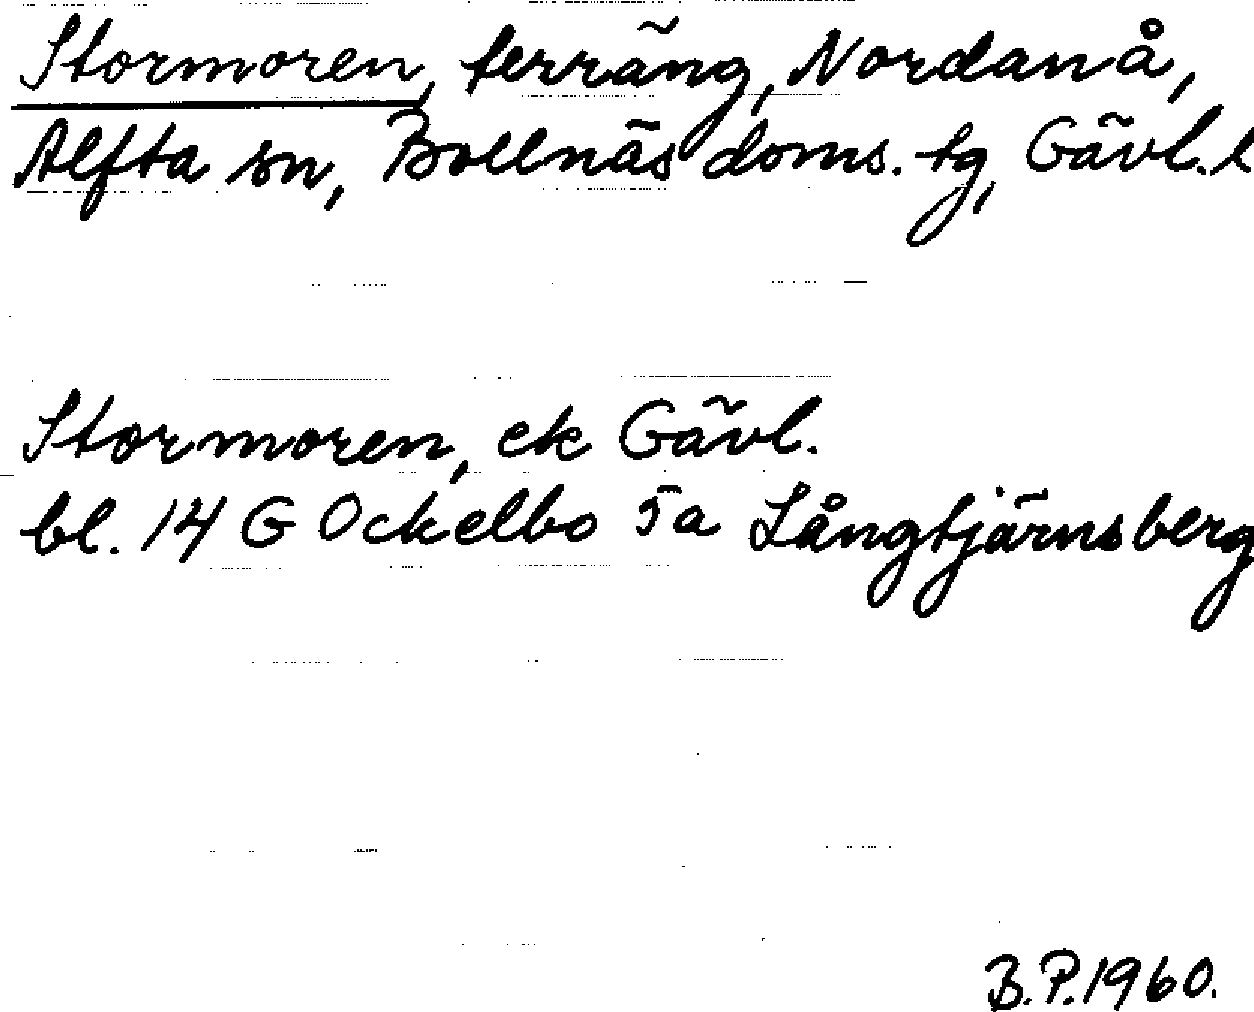 Stormoren, terräng, Nordanå,
Alfta sn, Bollnäs doms. tg, Gävl. l
Stormoren, ek Gävl.
bl. 14 G Ockelbo 5a Långtjärnsberg
B.P. 1960.